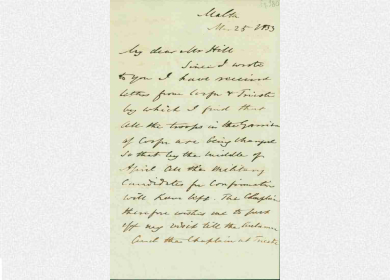 Malta
Mar 25 1853
My dear Mr Hill
Since I wrote
to you I have received
letters from Corfu & Trieste
by which I find that
all the troops in the Garrison
of Corfu are being changed
so that by the middle of
April all the Military
Candidates for Confirmation
will have left. The Chaplain
therefore wishes me to put
off my visit till the Autumn
And the Chaplain at Trieste